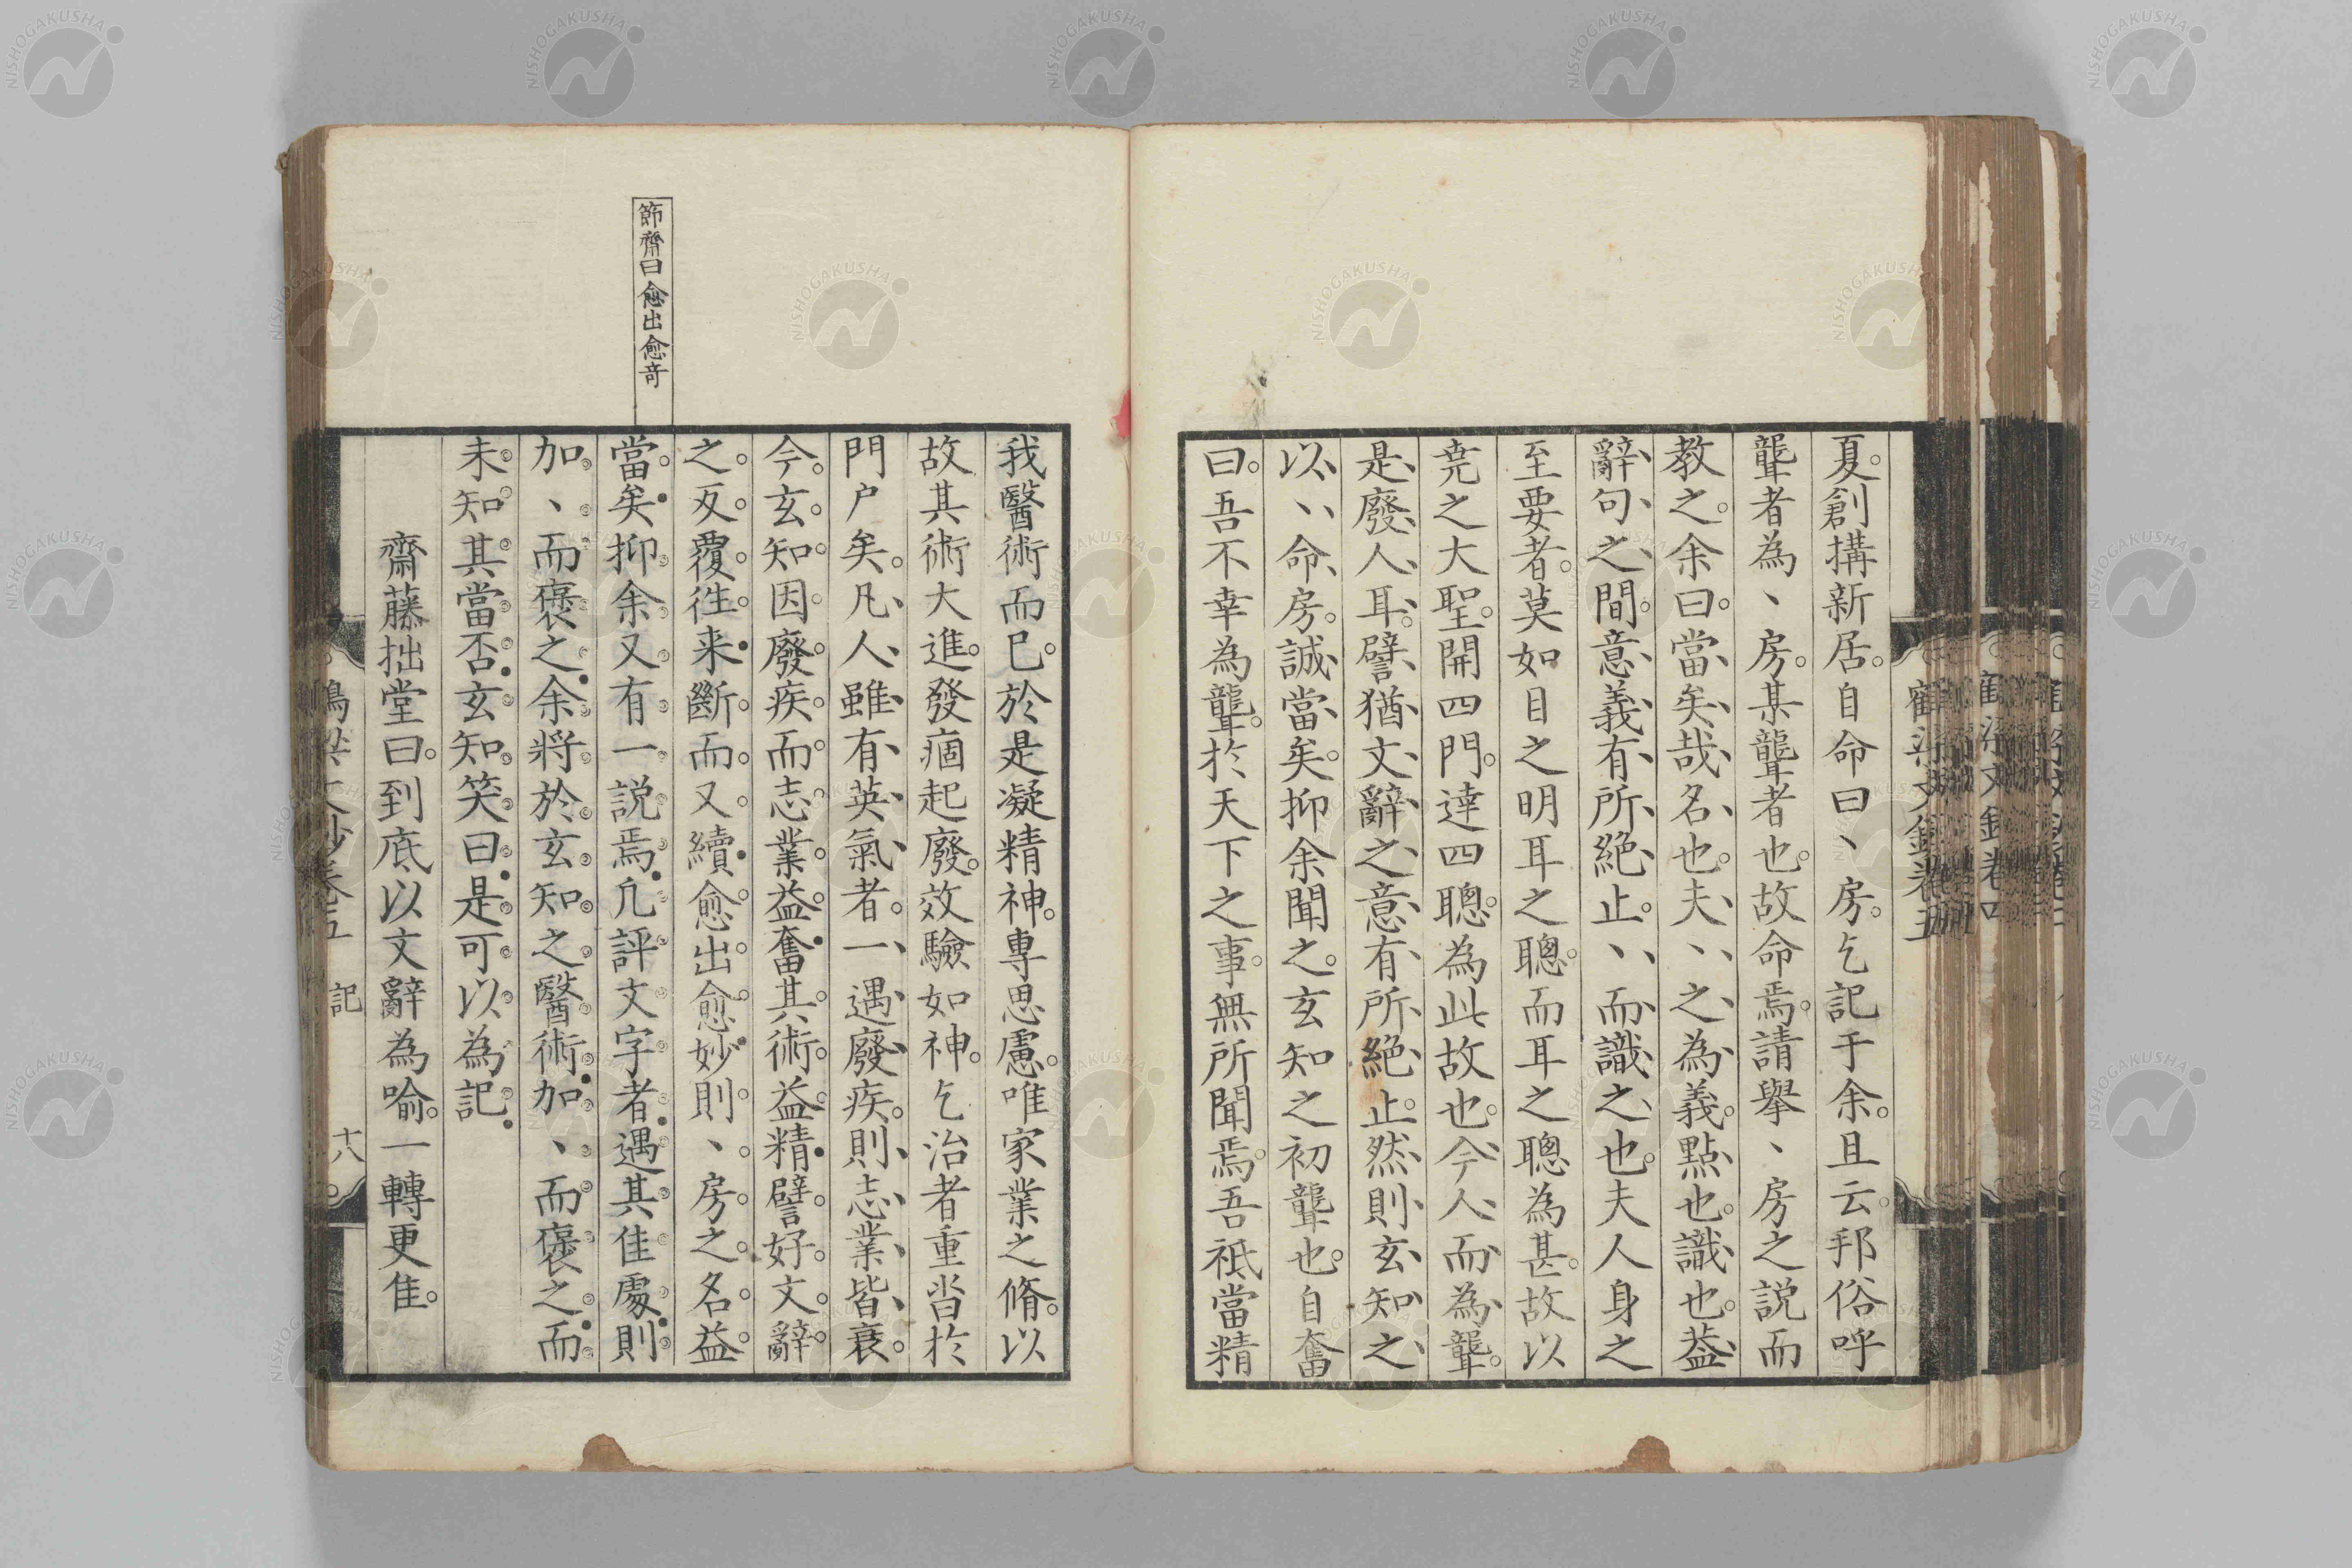 夏創搆新居自命曰丶房乞記于余且云邦俗呼
聾者為丶房某聾者也故命焉請擧丶房之説而
教之余曰當矣哉名也夫丶之為義點也識也葢
辭句之間意義有所絕止丶而識之也夫人身之
至要者莫如目之明耳之聰而耳之聰為甚故以
尭之大聖開四門達四聰為此故也今人而為聾
是廢人耳譬猶文辭之意有所絕止然則玄知之
以丶命房誠當矣抑余聞之玄知之初聾也自奮
曰吾不幸為聾於天下之事無所聞焉吾祇當精
我醫術而已於是凝精神專思慮唯家業之脩以
故其術大進發痼起廢效驗如神乞治者重沓於
門户矣凡人雖有英氣者一遇廢疾則志業皆衰
今玄知因廢疾而志業益奮其術益精譬好文辭
之反覆徃来斷而又續愈出愈妙則丶房之名益
當矣抑余又有一説焉凢評文字者遇其佳處則
加丶而褒之余将於玄知之醫術加丶而褒之而
未知其當否玄知笑曰是可以為記
齋藤拙堂曰到底以文辭為喻一轉更佳
節齋曰愈出愈奇
記
十八
NISHOGAKUSHA